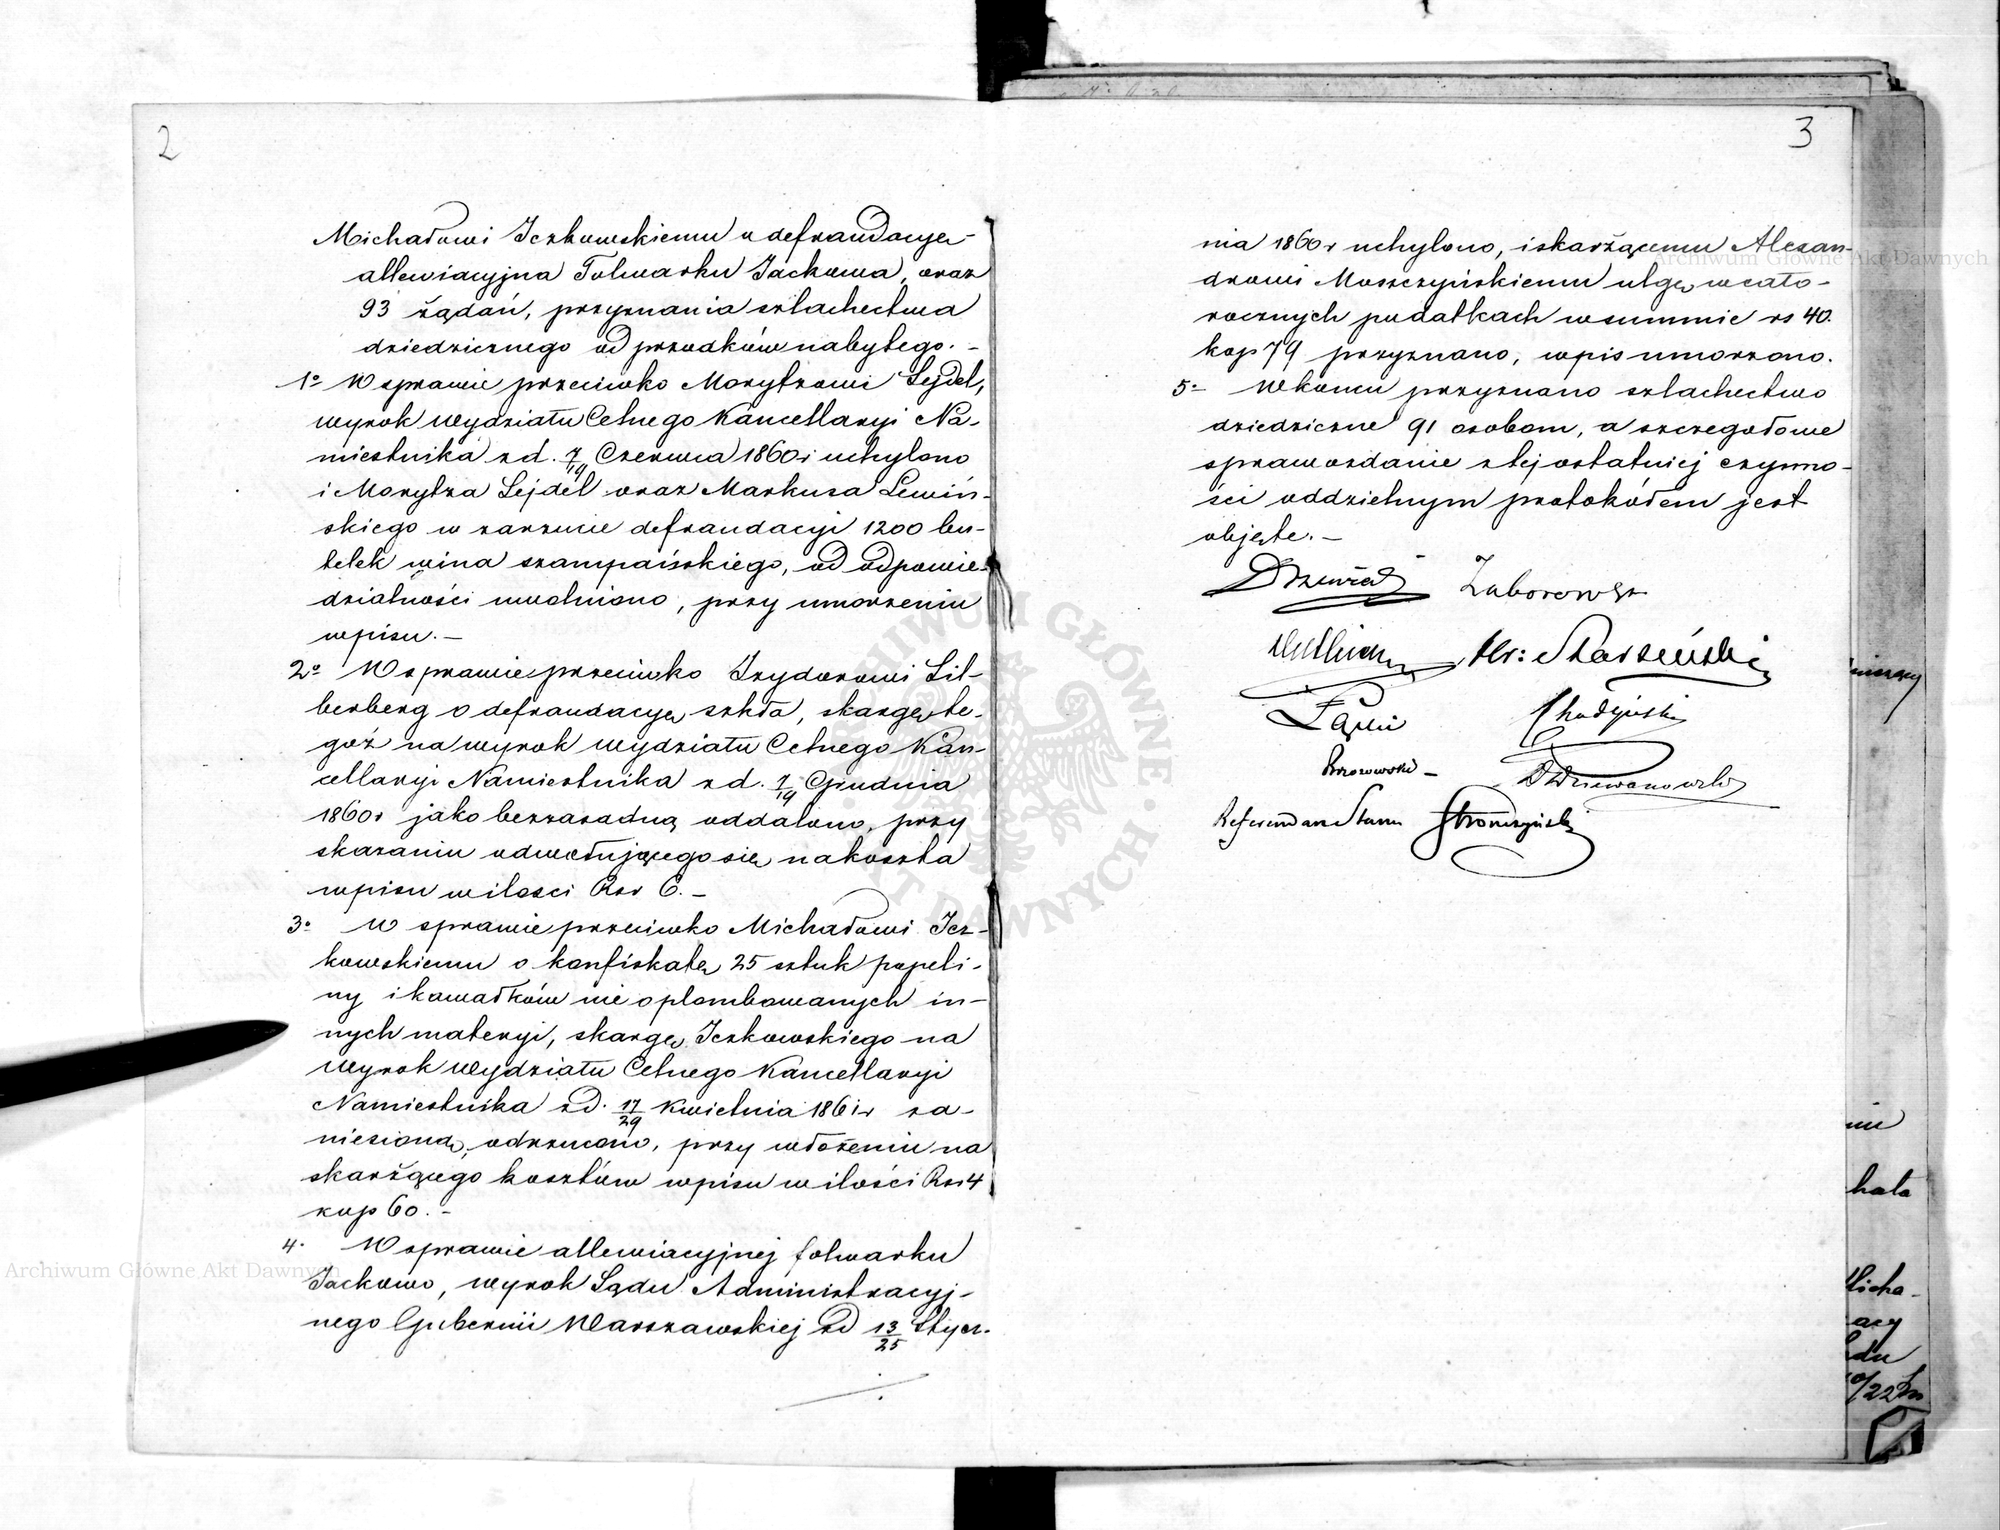 2
Michałowi Iczkowskiemu o defraudacyę
allewiacyjna Folwarku Jackowa, oraz
93 żądań, przyznania szlachectwa
dziedzicznego od przodków nabytego. –
1o W sprawie przeciwko Morytzowi Sejdel,
wyrok Wydziału Celnego Kancellaryi Na-
miestnika z d. 7/19 Czerwca 1860 r uchylono
i Morytza Sejdel oraz Markusa Lewiń-
skiego w zarzucie defraudacyi 1200 bu-
telek wina szampańskiego, od odpowie-
dzialności uwolniono, przy umorzeniu
wpisu. –
2o W sprawie przeciwko Izydorowi Sil-
berberg o defraudacyę szkła, skargę te-
goż na wyrok Wydziału Celnego Kan-
cellaryi Namiestnika z d. 7/19 Grudnia
1860 r jako bezzasadną oddalono, przy
skazaniu odwołującego się na koszta
wpisu w ilosci Rsr 6. –
3o W sprawie przeciwko Michałowi Icz-
kowskiemu o konfiskatę 25 sztuk popeli-
ny i kawałków nie oplombowanych in-
nych materyi, skargę Iczkowskiego na
Wyrok Wydziału Celnego Kancellaryi
Namiestnika z d. 17/29 Kwietnia 1861 r za-
niesioną, odrzucono, przy włożeniu na
skarżącego kosztów wpisu w ilości Rsr 4
kop 60. –
4. W sprawie allewiacyjnej folwarku
Jackowo, wyrok Sądu Administracyj-
nego Gubernii Warszawskiej z d 13/25 Stycz-
3
nia 1860 r uchylono, i skarżącemu Alexan-
drowi Moszczyńskiemu ulgę w cało-
rocznych podatkach w summie rs 40.
kop 79 przyznano, wpis umorzono.
5o W końcu przyznano szlachectwo
dziedziczne 91 osobom, a szczegołowe
sprawozdanie z tej ostatniej czynno-
ści oddzielnym protokółem jest
objęte. –
Zaborowski
Hr: Starzeński
Łącki
Chodyński
Brzozowski –
D Dziewanowski
Referendarz Stanu Stronczyński
Archiwum Główne Akt Dawnych
Archiwum Główne Akt Dawnych
ARCHIWUM GŁÓWNE AKT DAWNYCH